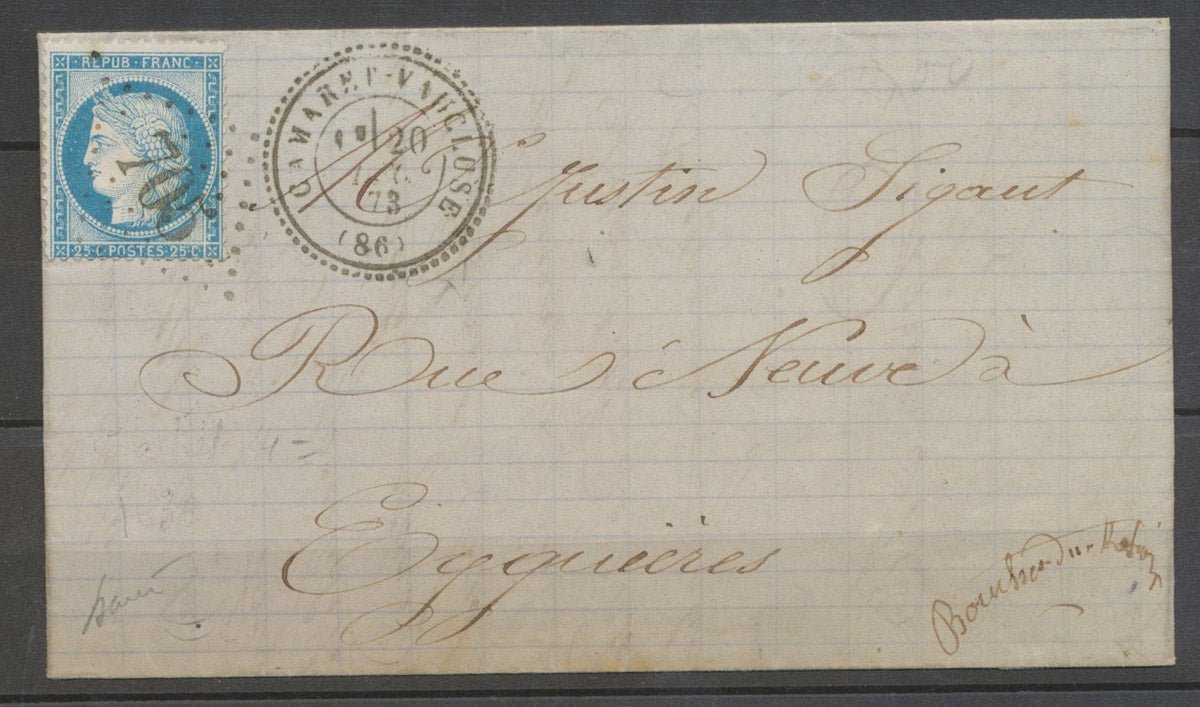 REPUB · FRANC
25·C·POSTES 25·C
CAMARET-VAUCLUSE
20
73
(86)
Mr Justin Sigaut
Rue Neuve à
Eyguières
Bouches-du-Rhône